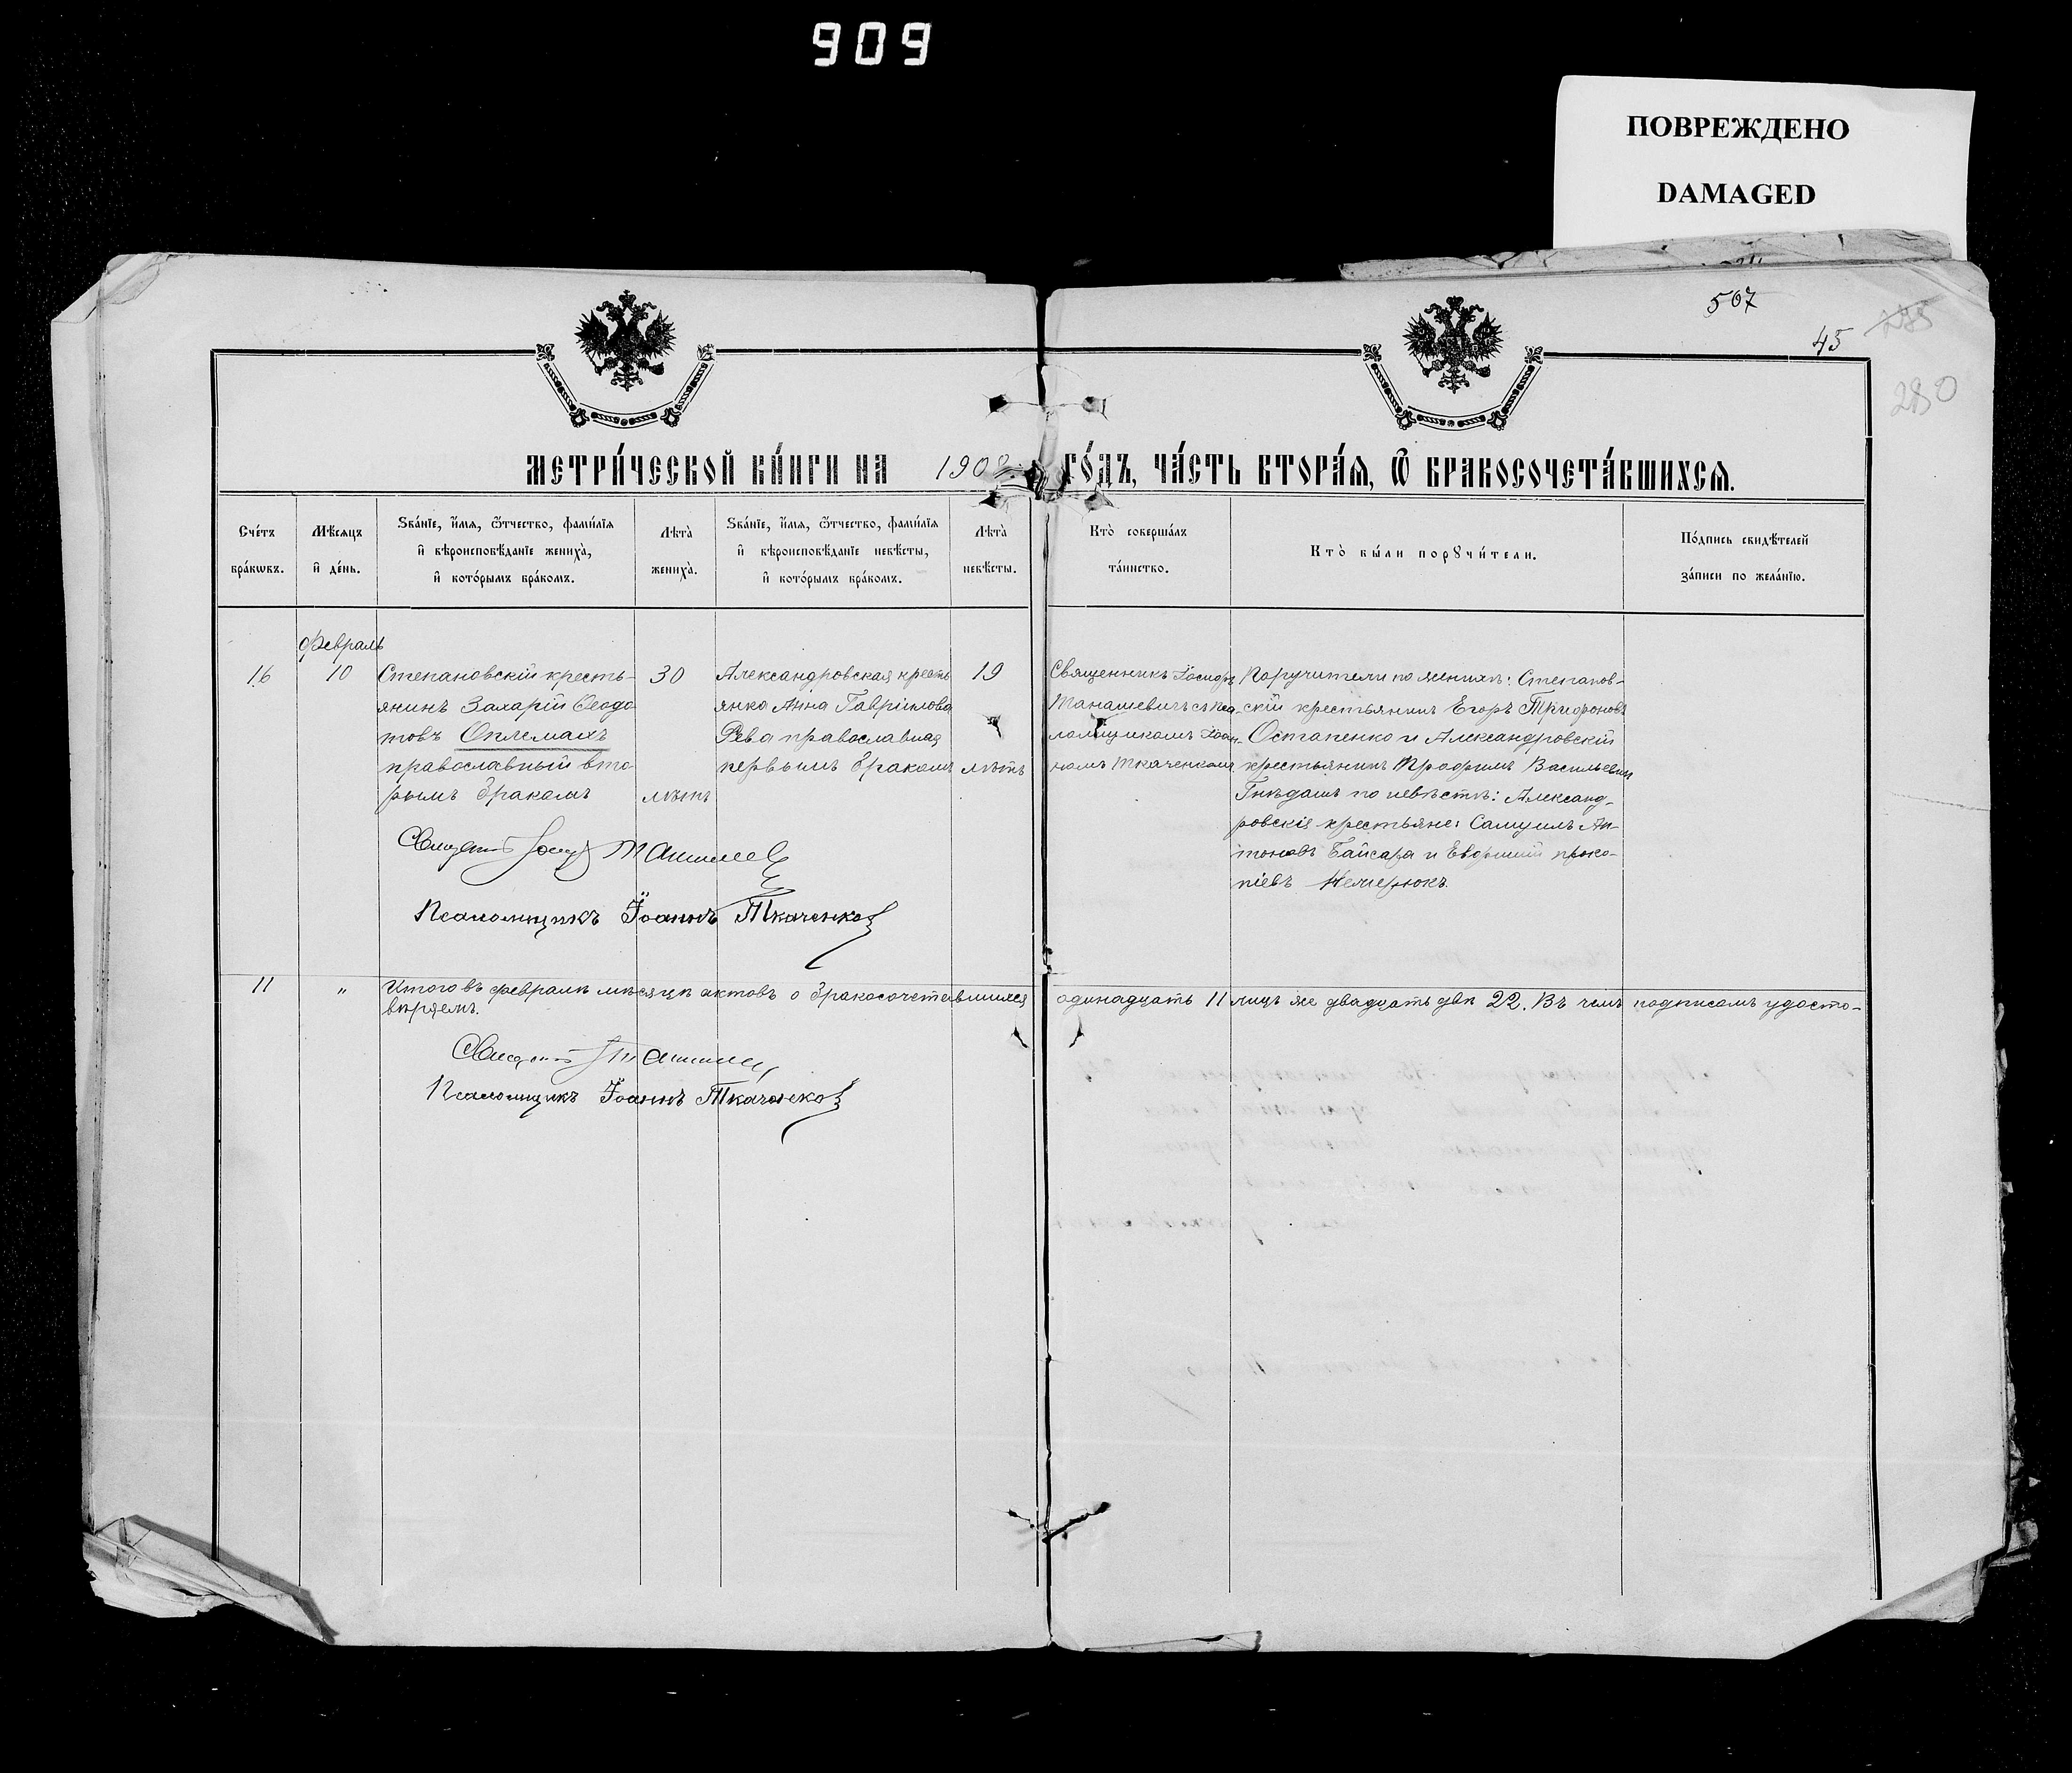 909
ПОВРЕЖДЕНО
DAMAGED
507
45
280
МЕТРИ́ЧЕСКОЙ КНИ́ГИ НА 1908 ГО́ДЪ, ЧА́СТЬ ВТОРА́Ѧ, Ѿ БРАКОСОЧЕТА́ВШИХСѦ.
Сче́тъ
бра́кѡвъ.
Мѣ́сѧцъ
и҆ де́нь.
Ѕва́нїе, и҆́мѧ, ѻ҆́тчество, фами́лїѧ
и҆ вѣроисповѣ́данїе жениха̀,
и҆ кото́рымъ бра́комъ.
Лѣта̀
жениха̀.
Ѕва́нїе, и҆́мѧ, ѻ҆́тчество, фами́лїѧ
и҆ вѣроисповѣ́данїе невѣ́сты,
и҆ кото́рымъ бра́комъ.
Лѣта̀
невѣ́сты.
Кто̀ соверша́лъ
та́инство.
Кто̀ бы́ли порꙋчи́тели.
По́дпись свидѣ́телей
за́писи по жела́нїю.
16
Февраль
10
Степановскій кресть-
янинъ Захарій Ѳеодо
товъ Оплемахъ
православный вто-
рымъ бракомъ
30
лѣтъ
Александровская кресть
янка Анна Гавріилова
Рева православная
первымъ бракомъ
19
лѣтъ
Священникъ Іосифъ
Танашевичъ съ пса-
ломщикомъ Іоан-
номъ Ткаченкомъ
Поручители по женихѣ: Степанов-
скій крестьянинъ Егоръ Трифоновъ
Остапенко и Александровскій
крестьянинъ Трофимъ Васильевъ
Гнѣдашъ по невѣстѣ: Александ-
ровскіе крестьяне: Самуилъ Ан-
тоновъ Байсара и Евфимій Проко-
піевъ Немерюкъ.
Псаломщикъ Іоаннъ Ткаченко
11 " Итого въ февралѣ мѣсяцѣ актовъ о бракосочетавшихся одинадцать 11 лицъ же двадцать два 22. Въ чемъ подписомъ удосто-
вѣряемъ.
Псаломщикъ Іоаннъ Ткаченко